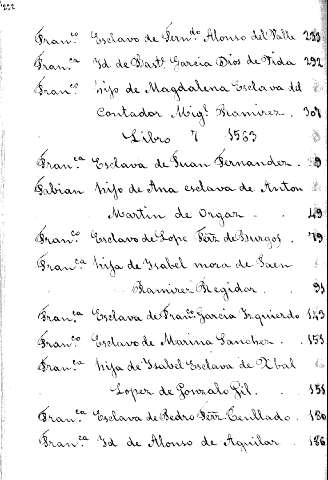 Fran.co Esclavo de Fern.do Alonso del Valle 283
Fran.ca Id de Bart.e Garcia Dios de Vida 292
Fran.co hijo de Magdalena Esclava del
Contador Mig.l Ramirez. 308
Libro 7 1563
Fran.ca Esclava de Juan Fernandez. 9
Fabian hijo de Ana esclava de Anton
Martin de Orgaz . . 49
Fran.co Esclavo de Lope Frz de Burgos. 79
Fran.ca hija de Isabel mora de Jaen
Ramirez Regidor. . 91
Fran.ca Esclava de Fran.co Garcia Izquierdo 143
Fran.co Esclavo de Marina Sanchez. . 151
Fran.ca hija de Isabel Esclava de Xbal
Lopez de Gonzalo Gil. . 151
Fran.ca Esclava de Pedro Frz. Cenllado. 180
Fran.ca Id de Alonso de Aguilar . . 186